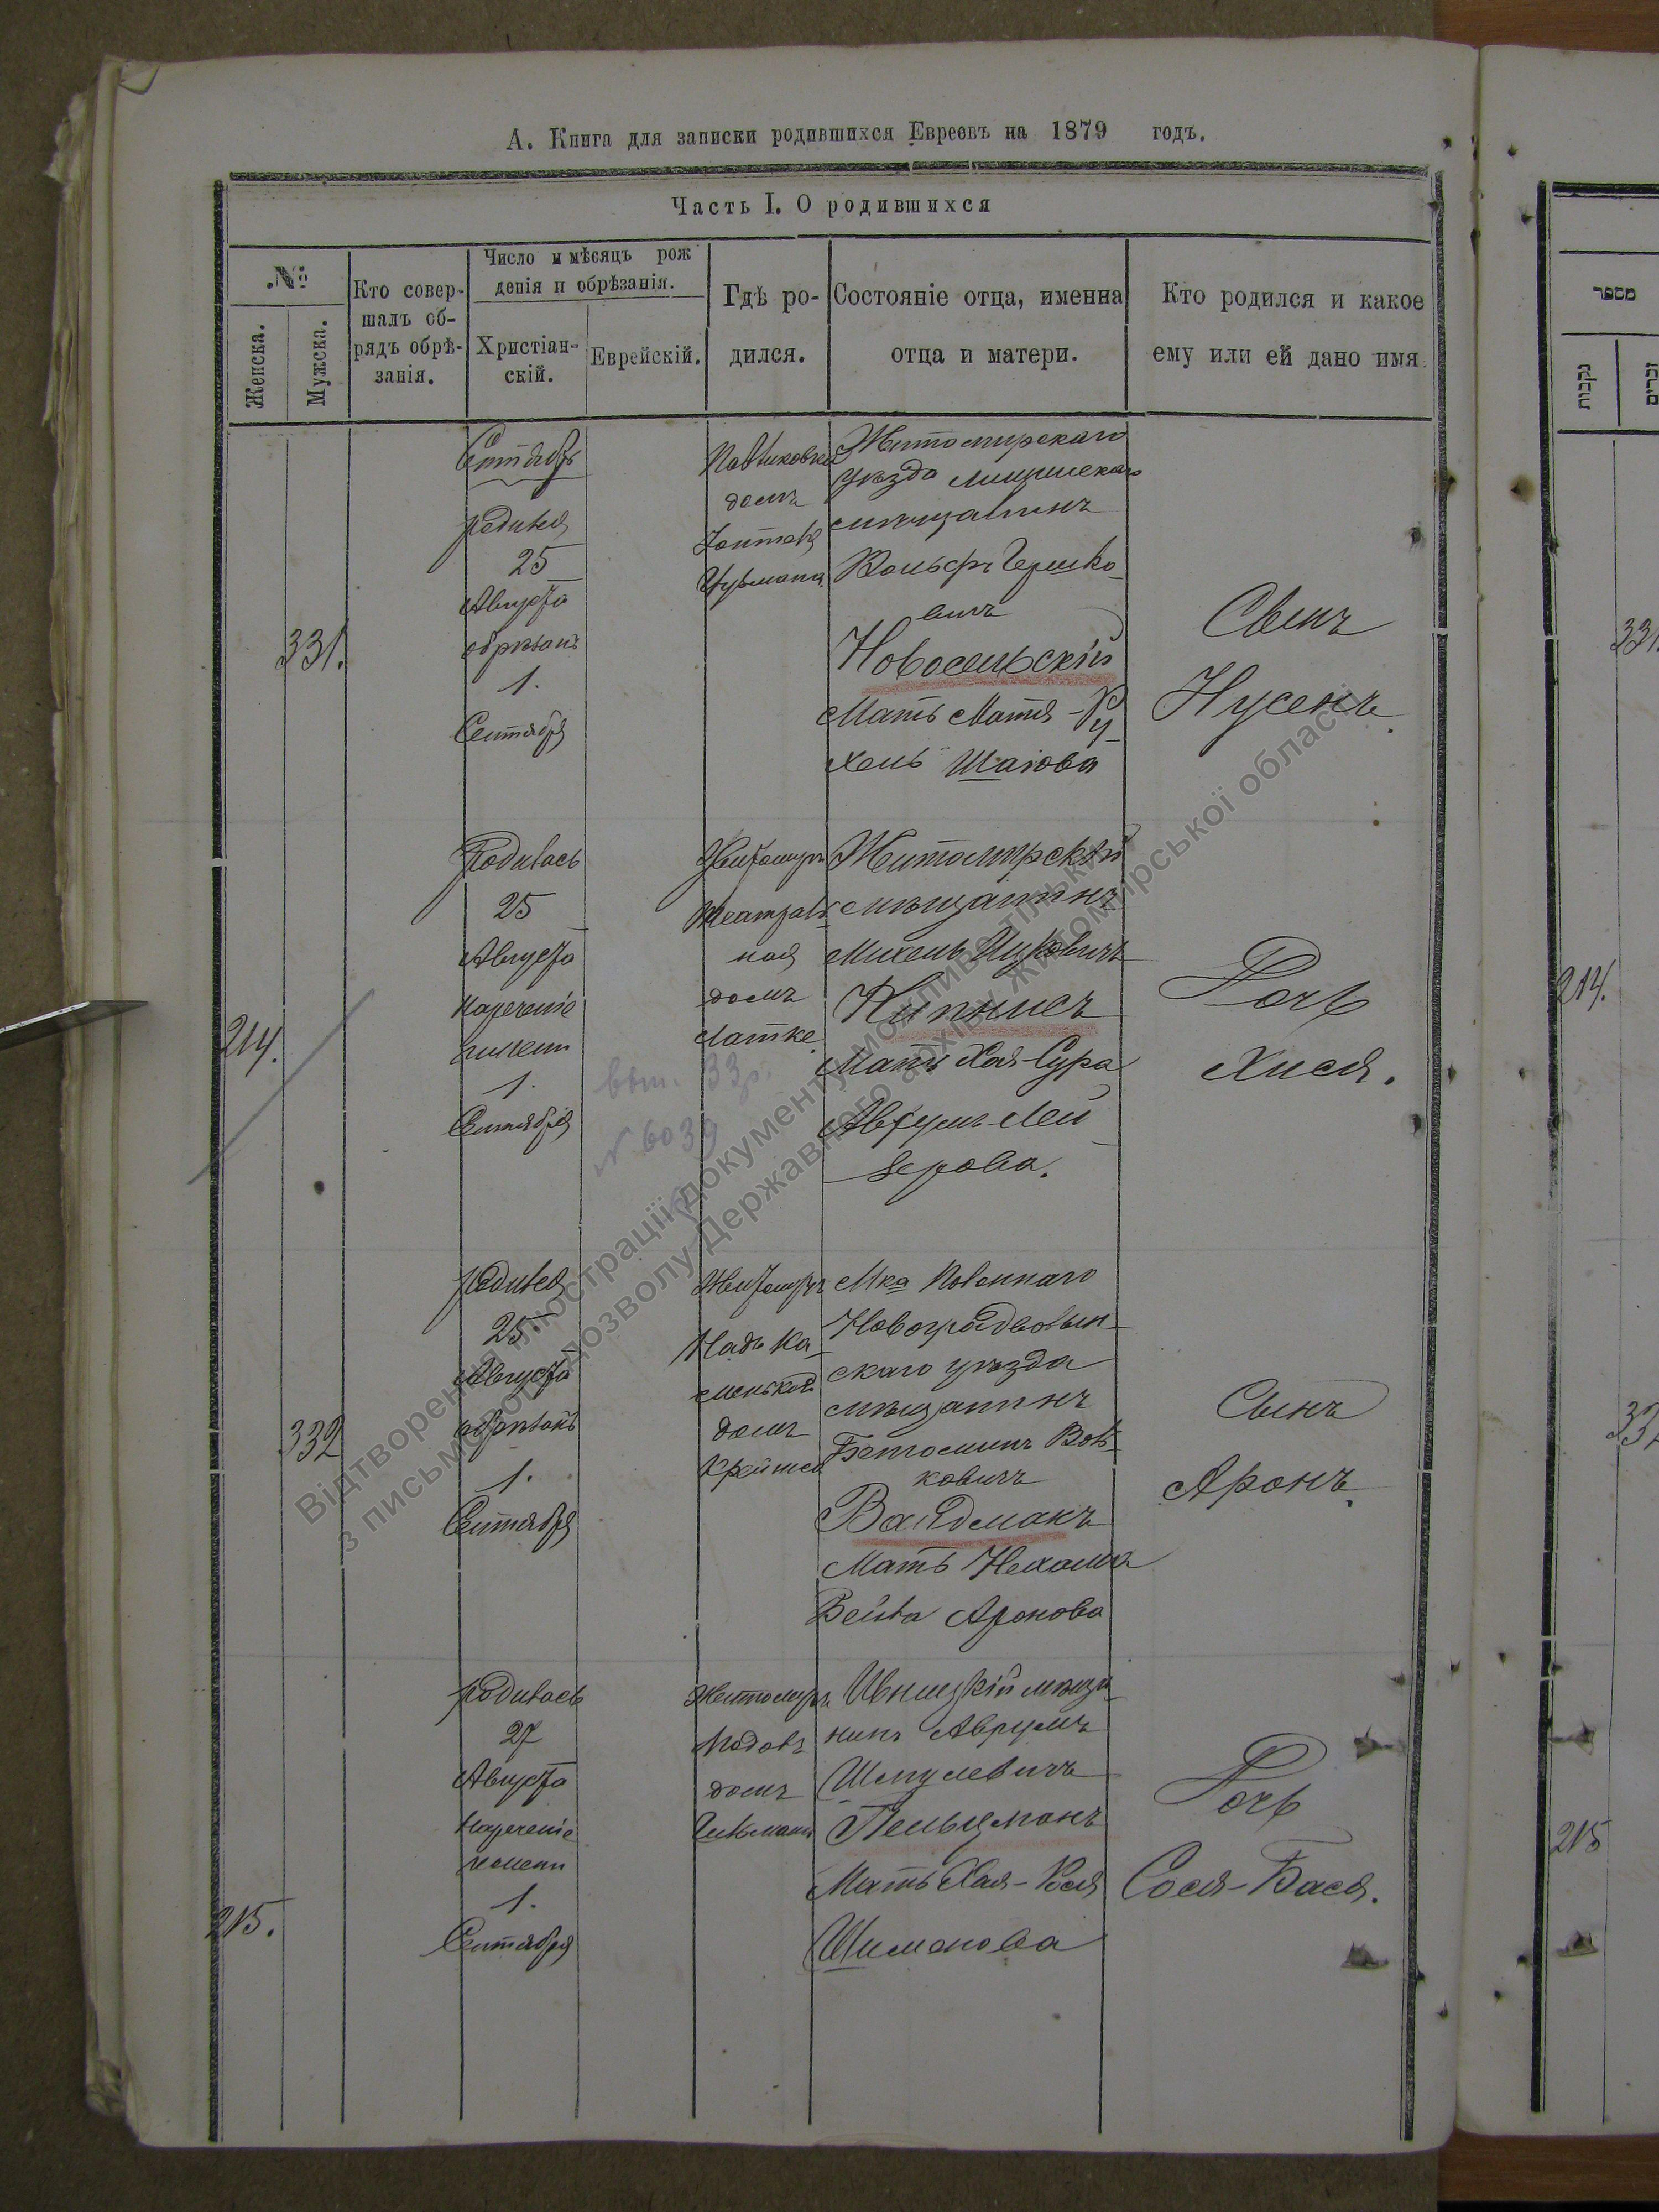 А. Книга для записки родившихся Евреевъ на 1879 годъ.
Часть I. О родившихся
№
Женска.
Мужска.
Кто совер-
шалъ об-
рядъ обрѣ-
занія.
Число и мѣсяцъ рож
денія и обрѣзанія.
Христіан-
скій.
Еврейскій.
Гдѣ ро-
дился.
Состояніе отца, именна
отца и матери.
Кто родился и какое
ему или ей дано имя
331.
Сентябрь
родился
25
Августа
обрѣзанъ
1.
Сентября
домъ
Житомирскаго
уѣзда
мѣщанинъ
Вольфъ Гершко-
вичъ
Новосельскій
Мать Матя-Ру-
хель Шаіова
Сынъ
Нусенъ.
214.
Родилась
25
Августа
нареченіе
имени
1.
Сентября
Житомиръ
Театраль-
ная
домъ
Латке
вып. 33г.
№ 6039
Житомирскій
мѣщанинъ
Михель Ицковичъ
Кипнисъ
Мать Хая-Сура
Аврумъ-Лей-
зерова.
Дочь
Хися.
332
родился
25
Августа
обрѣзанъ
1.
Сентября
Житомиръ
Надъ Ка-
менькой
домъ
Новоградволын-
скаго уѣзда
мѣщанинъ
Веніоминъ Воль-
ковичъ
Вайдманъ
Мать Нехама
Бейла Аронова
Сынъ
Аронъ.
215.
родилась
27
Августа
нареченіе
имени
1.
Сентября
Житомиръ
домъ
Ивницкій мѣща-
нинъ Аврумъ
Шмулевичъ
Пельцманъ
Мать Хая-Рося
Шимонова
Дочь
Сося-Бася.
Відтворення ілюстрації документу можливе тільки
з письмового дозволу Державного архіву Житомирської області
מספר
נקבות
זכרים
331
214.
332
215